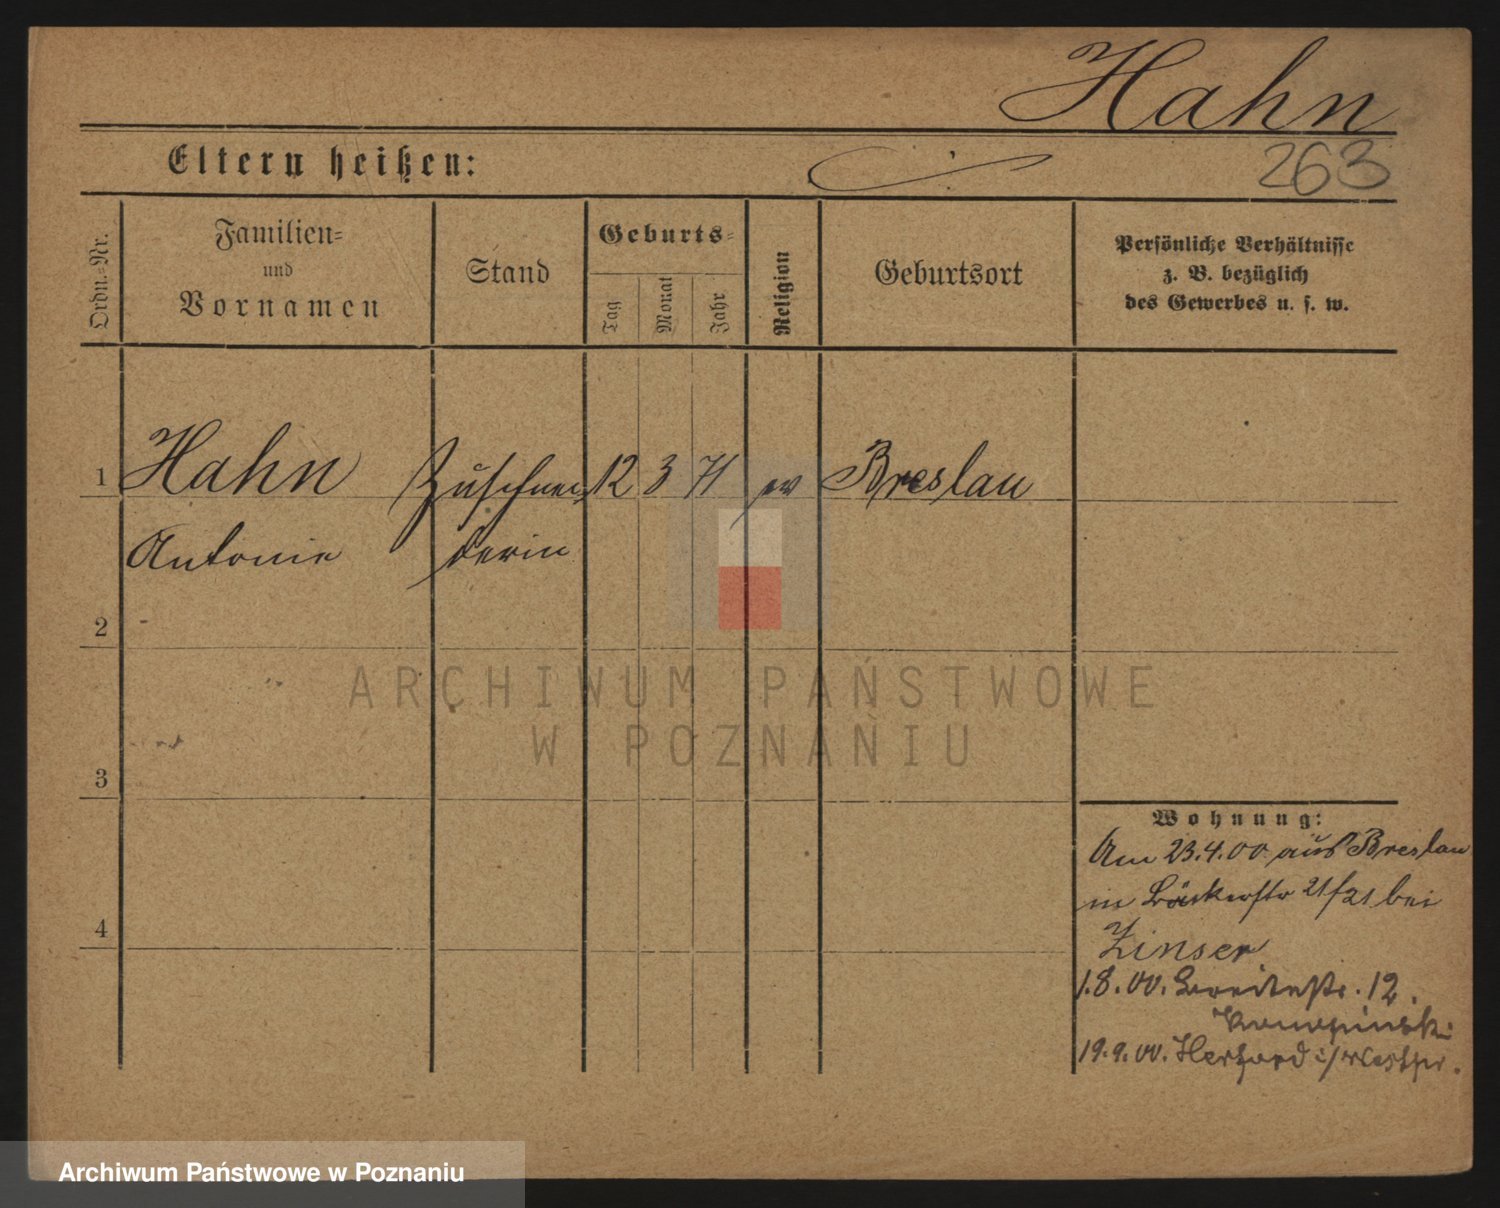 Hahn
263
Eltern heißen:
Ordn.-Nr.
Familien-
und
Vornamen
Stand
Geburts-
Tag
Monat
Jahr
Religion
Geburtsort
Persönliche Verhältnisse
z. B. bezüglich
des Gewerbes u. s. w.
1 Hahn Zuschnei 12 3 71 ev Breslau
Antonie derin
2
ARCHIWUM PAŃSTWOWE
W POZNANIU
3
Wohnung:
Am 23.4.00 aus Breslau
in Bäckerstr 21/21 bei
4
Zinser
1.8.00. Breitestr. 12.
19.9.00. Herford i/Westph.
Archiwum Państwowe w Poznaniu